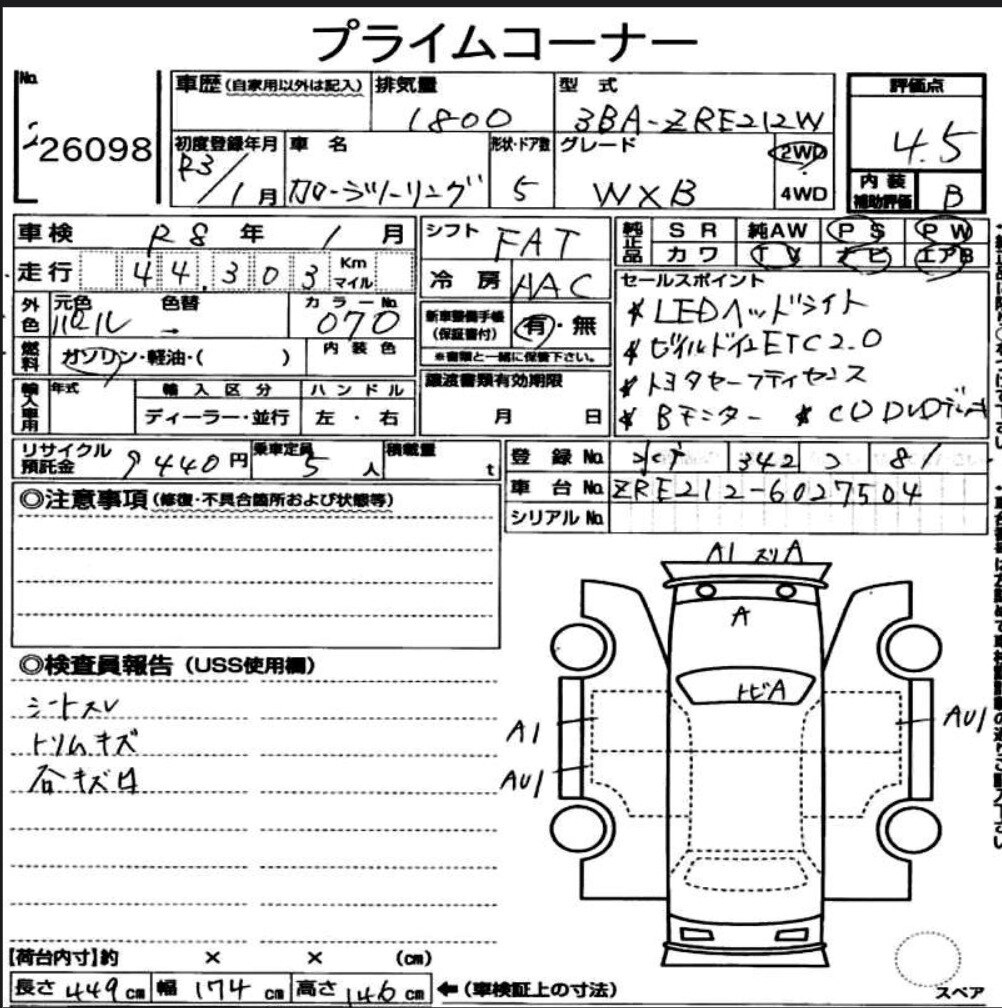 プライムコーナー
No.
26098
車歴 (自家用以外は記入)
排気量
1800
型 式
3BA-ZRE212W
評価点
4.5
初度登録年月
R3/1月
車 名
カローラツーリング
形状・ドア数
5
グレード
WXB
2WD
・
4WD
内 装
補助評価
B
車検 R8 年 1 月
走行 44,303 Km マイル
シフト FAT
冷 房 AAC
純正品
SR 純AW PS PW
カワ TV ナビ エアB
外色
元色 色替
パール →
カラーNo.
070
新車整備手帳
(保証書付)
有・無
※書類と一緒に保管下さい。
セールスポイント
* LEDヘッドライト
* ビルドインETC2.0
* トヨタセーフティセンス
* Bモニター * CD DVDデッキ
燃料
ガソリン・軽油・( )
内 装 色
輸入車用
年式
輸 入 区 分
ディーラー・並行
ハ ン ド ル
左・右
譲渡書類有効期限
月 日
リサイクル
預託金
9440円
乗車定員
5 人
積載量
t
登 録 No. 342 81
車 台 No. ZRE212-6027504
シリアル No.
◎注意事項 (修復・不具合箇所および状態等)
A1 スリA
A
トビA
A1
AU1
AU1
◎検査員報告 (USS使用欄)
シートスレ
トリムキズ
【荷台内寸】約 × × (cm)
長さ 449 cm 幅 174 cm 高さ 146 cm ←(車検証上の寸法)
スペア